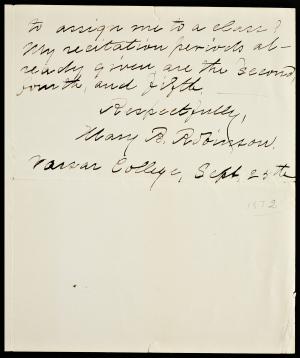 to assign me to a class?
My recitation periods al-
ready given are the second,
fourth, and fifth.
Respectfully,
Mary B. Robinson.
Vassar College, Sept. 25th
1872